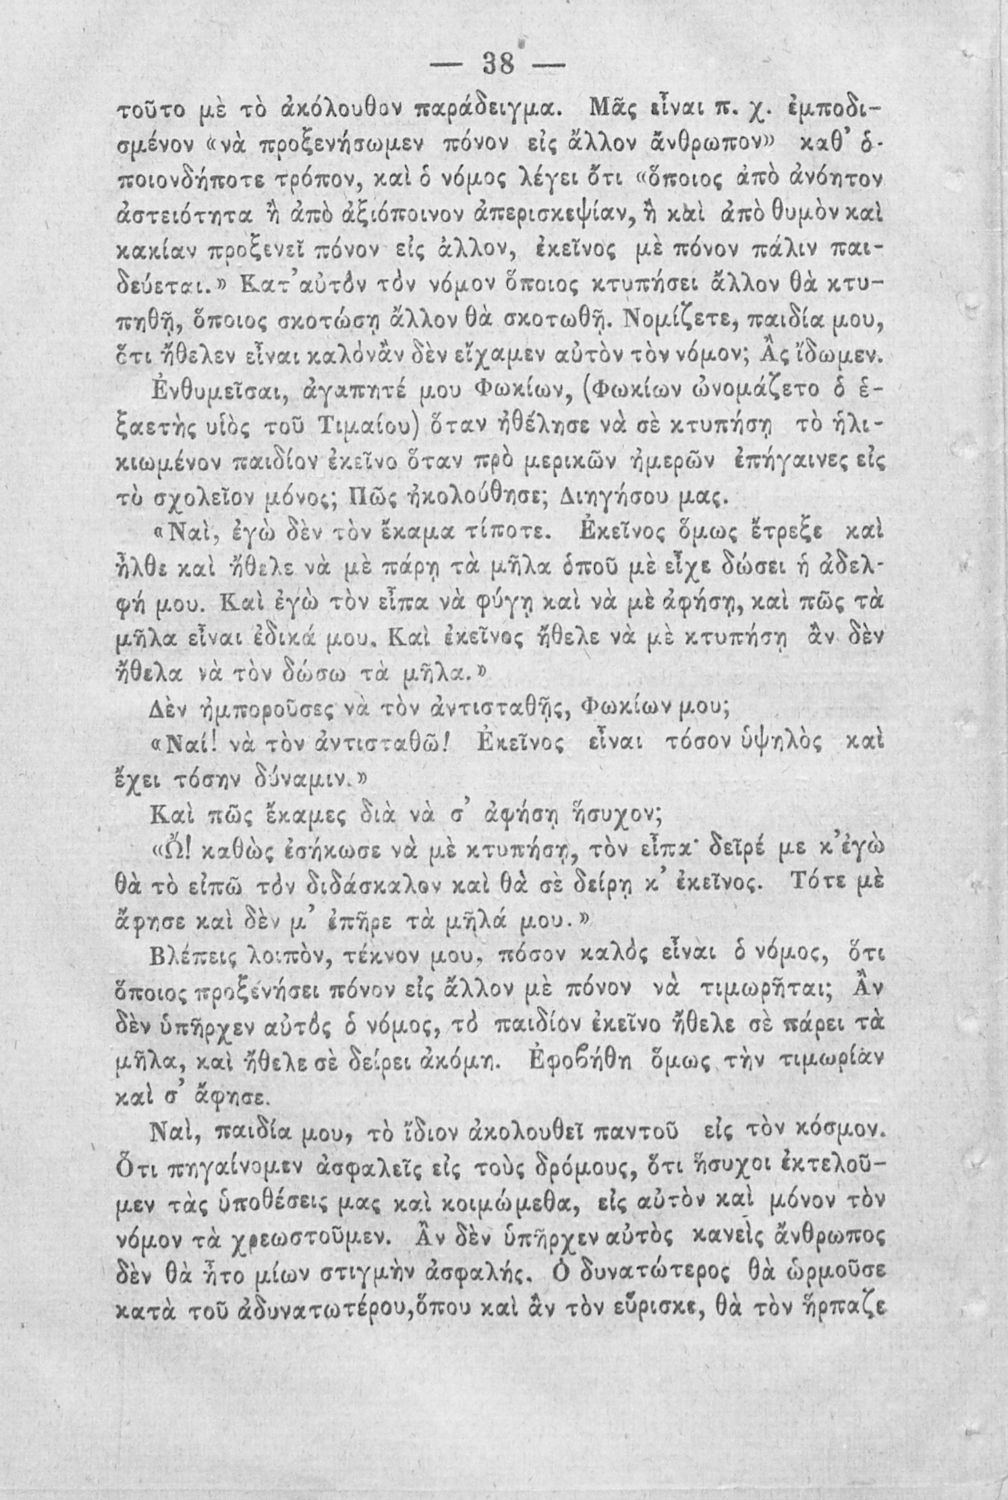 — 38 —
τοῦτο μὲ τὸ ἀκόλουθον παράδειγμα. Μᾶς εἶναι π. χ. ἐμποδι-
σμένον «νὰ προξενήσωμεν πόνον εἰς ἄλλον ἄνθρωπον» καθ’ ὁ-
ποιονδήποτε τρόπον, καὶ ὁ νόμος λέγει ὅτι «ὅποιος ἀπὸ ἀνόητον
ἀστειότητα ἢ ἀπὸ ἀξιόποινον ἀπερισκεψίαν, ἢ καὶ ἀπὸ θυμὸν καὶ
κακίαν προξενεῖ πόνον εἰς ἄλλον, ἐκεῖνος μὲ πόνον πάλιν παι-
δεύεται.» Κατ’ αὐτὸν τὸν νόμον ὅποιος κτυπήσει ἄλλον θὰ κτυ-
πηθῇ, ὅποιος σκοτώσῃ ἄλλον θὰ σκοτωθῇ. Νομίζετε, παιδία μου,
ὅτι ἤθελεν εἶναι καλὸν ἂν δὲν εἴχαμεν αὐτὸν τὸν νόμον; Ἂς ἴδωμεν.
Ἐνθυμεῖσαι, ἀγαπητέ μου Φωκίων, (Φωκίων ὠνομάζετο ὁ ἑ-
ξαετὴς υἱὸς τοῦ Τιμαίου) ὅταν ἠθέλησε νὰ σὲ κτυπήσῃ τὸ ἡλι-
κιωμένον παιδίον ἐκεῖνο ὅταν πρὸ μερικῶν ἡμερῶν ἐπήγαινες εἰς
τὸ σχολεῖον μόνος; Πῶς ἠκολούθησε; Διηγήσου μας.
«Ναὶ, ἐγὼ δὲν τὸν ἔκαμα τίποτε. Ἐκεῖνος ὅμως ἔτρεξε καὶ
ἦλθε καὶ ἤθελε νὰ μὲ πάρῃ τὰ μῆλα ὁποῦ μὲ εἶχε δώσει ἡ ἀδελ-
φή μου. Καὶ ἐγὼ τὸν εἶπα νὰ φύγῃ καὶ νὰ μὲ ἀφήσῃ, καὶ πῶς τὰ
μῆλα εἶναι ἐδικά μου. Καὶ ἐκεῖνος ἤθελε νὰ μὲ κτυπήσῃ ἂν δὲν
ἤθελα νὰ τὸν δώσω τὰ μῆλα.»
Δὲν ἠμποροῦσες νὰ τὸν ἀντισταθῇς, Φωκίων μου;
«Ναί! νὰ τὸν ἀντισταθῶ! Ἐκεῖνος εἶναι τόσον ὑψηλὸς καὶ
ἔχει τόσην δύναμιν.»
Καὶ πῶς ἔκαμες διὰ νὰ σ’ ἀφήσῃ ἥσυχον;
«Ὢ! καθὼς ἐσήκωσε νὰ μὲ κτυπήσῃ, τὸν εἶπα· δεῖρέ με κ’ ἐγὼ
θὰ τὸ εἰπῶ τὸν διδάσκαλον καὶ θὰ σὲ δείρῃ κ’ ἐκεῖνος. Τότε μὲ
ἄφησε καὶ δὲν μ’ ἐπῆρε τὰ μῆλά μου.»
Βλέπεις λοιπὸν, τέκνον μου, πόσον καλὸς εἶναι ὁ νόμος, ὅτι
ὅποιος προξενήσει πόνον εἰς ἄλλον μὲ πόνον νὰ τιμωρῆται; Ἂν
δὲν ὑπῆρχεν αὐτὸς ὁ νόμος, τὸ παιδίον ἐκεῖνο ἤθελε σὲ πάρει τὰ
μῆλα, καὶ ἤθελε σὲ δείρει ἀκόμη. Ἐφοβήθη ὅμως τὴν τιμωρίαν
καὶ σ’ ἄφησε.
Ναὶ, παιδία μου, τὸ ἴδιον ἀκολουθεῖ παντοῦ εἰς τὸν κόσμον.
Ὅτι πηγαίνομεν ἀσφαλεῖς εἰς τοὺς δρόμους, ὅτι ἥσυχοι ἐκτελοῦ-
μεν τὰς ὑποθέσεις μας καὶ κοιμώμεθα, εἰς αὐτὸν καὶ μόνον τὸν
νόμον τὰ χρεωστοῦμεν. Ἂν δὲν ὑπῆρχεν αὐτὸς κανεὶς ἄνθρωπος
δὲν θὰ ἦτο μίων στιγμὴν ἀσφαλής. Ὁ δυνατώτερος θὰ ὡρμοῦσε
κατὰ τοῦ ἀδυνατωτέρου, ὅπου καὶ ἂν τὸν εὕρισκε, θὰ τὸν ἥρπαζε